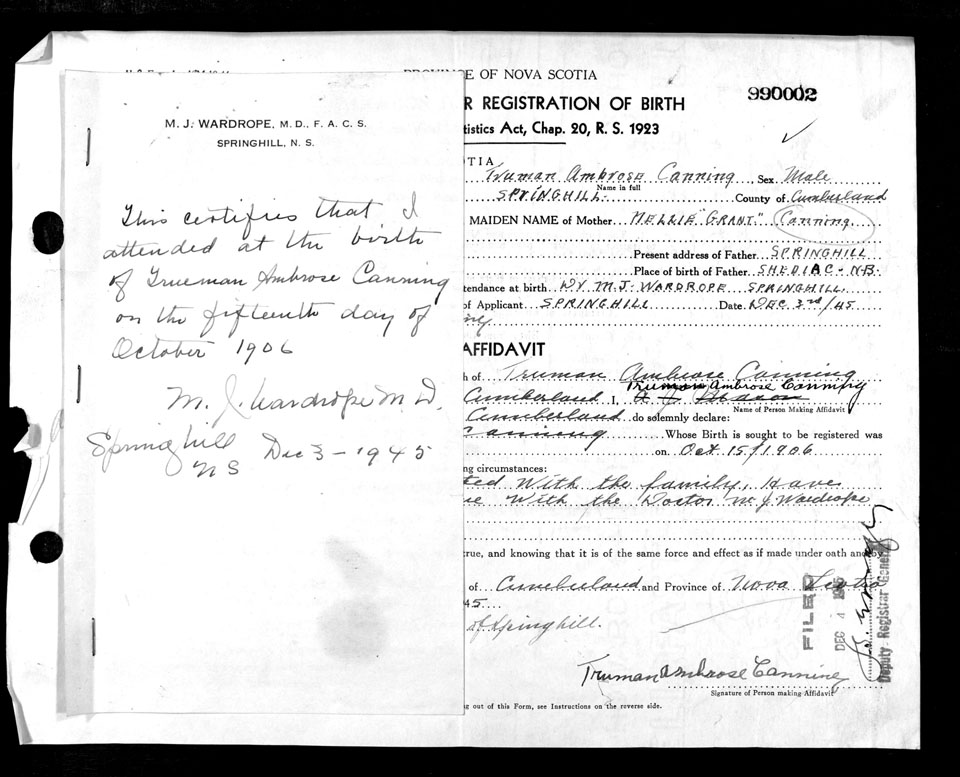 M. J. WARDROPE, M. D., F. A. C. S.
SPRINGHILL, N. S.
This certifies that I
attended at the birth
of Trueman Ambrose Canning
on the fifteenth day of
October 1906
M. J. Wardrope M D.
Springhill Dec 3 - 1945
N S
PROVINCE OF NOVA SCOTIA
R REGISTRATION OF BIRTH
990002
tistics Act, Chap. 20, R. S. 1923
OTIA
Truman Ambrose Canning, Sex Male
Name in full
SPRINGHILL County of Cumberland
MAIDEN NAME of Mother NELLIE "GRANT" Canning
Present address of Father SPRINGHILL
Place of birth of Father SHEDIAC - N.B.
ttendance at birth Dr M.J. WARDROPE SPRINGHILL
of Applicant SPRINGHILL Date DEC 3rd/45
AFFIDAVIT
h of Truman Ambrose Canning
Cumberland I, Truman Ambrose Canning
Name of Person Making Affidavit
Cumberland do solemnly declare:
Canning Whose Birth is sought to be registered was
on Oct 15/1906
ng circumstances:
ted With the family, Have
With the Doctor M J Wardrope
rue, and knowing that it is of the same force and effect as if made under oath and by
of Cumberland and Province of Nova Scotia
45
of Springhill.
FILED
DEC 4 1945
Deputy Registrar General
Truman Ambrose Canning
Signature of Person making Affidavit
g out of this Form, see Instructions on the reverse side.